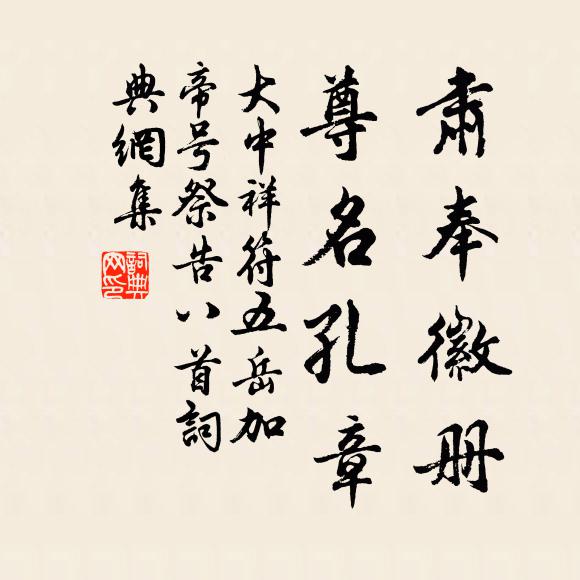 肅奉徽册
尊名孔章
大中祥符五岳加
帝号祭告八首詞
典網集
詞典網印